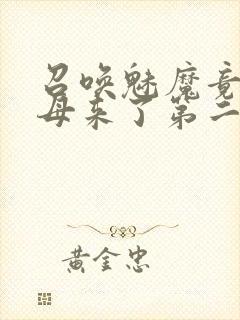 召唤魅魔竟
母来了第二
黄金忠